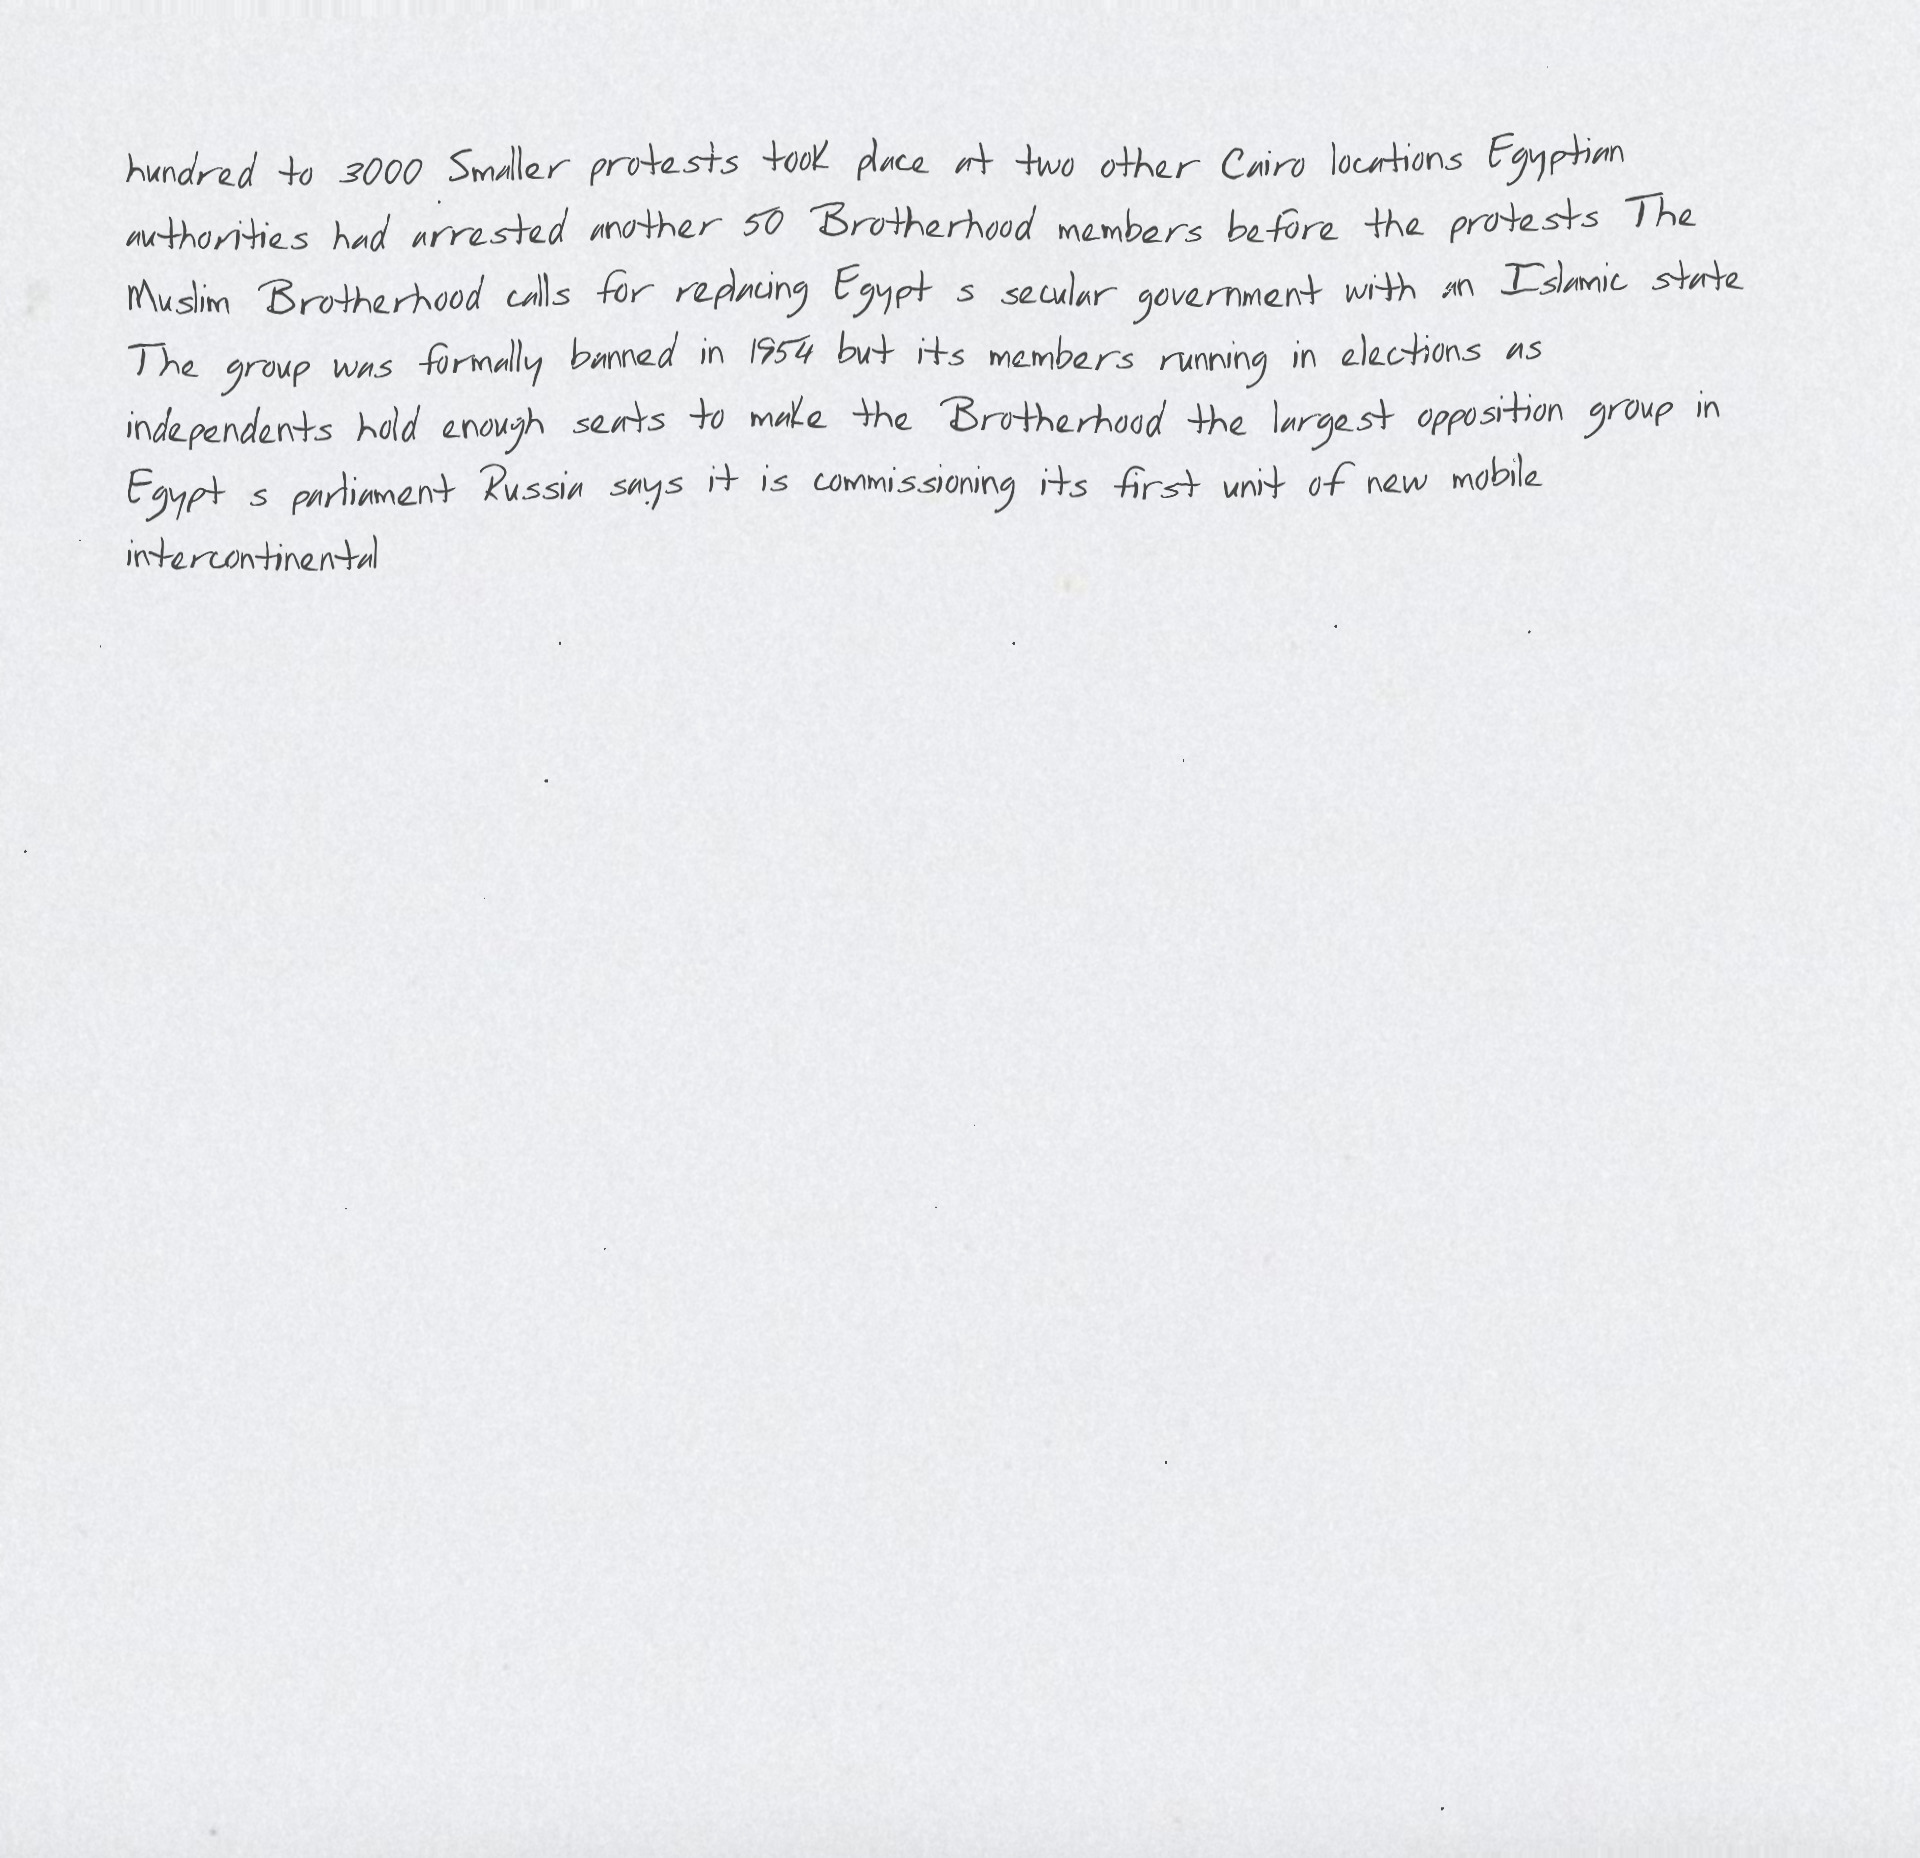 hundred to 3000 Smaller protests took place at two other Cairo locations Egyptian
authorities had arrested another 50 Brotherhood members before the protests The
Muslim Brotherhood calls for replacing Egypt s secular government with an Islamic state
The group was formally banned in 1954 but its members running in elections as
independents hold enough seats to make the Brotherhood the largest opposition group in
Egypt s parliament Russia says it is commissioning its first unit of new mobile
intercontinental